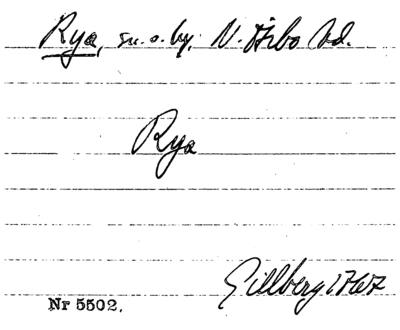 Rya, sn. o. by, N. Åsbo hd.
Rya
Gillberg 1767
Nr 5502.